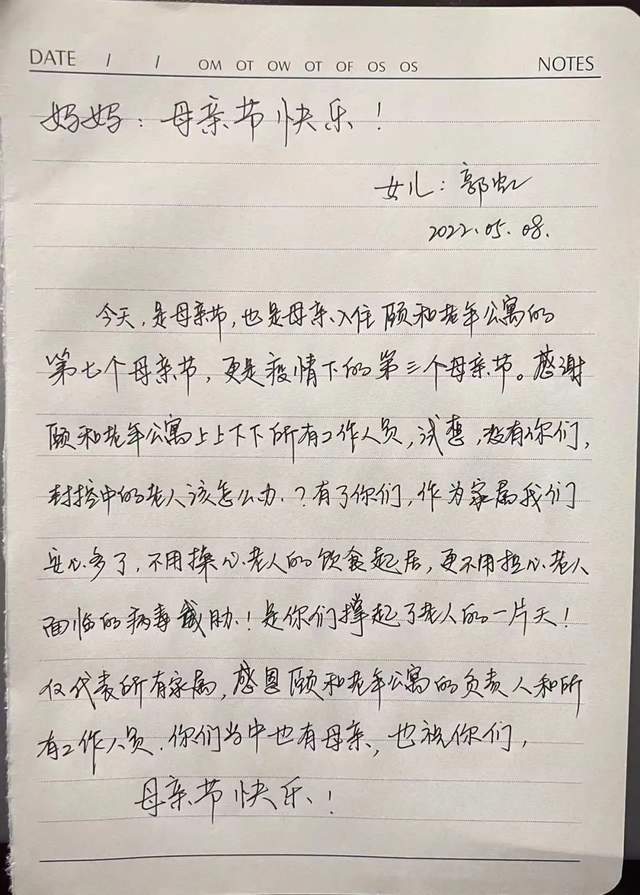 DATE / / OM OT OW OT OF OS OS NOTES
妈妈：母亲节快乐！
女儿：郭虹
2022.05.08.
今天，是母亲节，也是母亲入住颐和老年公寓的
第七个母亲节，更是疫情下的第三个母亲节。感谢
颐和老年公寓上上下下所有工作人员，试想，没有你们，
封控中的老人该怎么办？有了你们，作为家属我们
安心多了，不用操心老人的饮食起居，更不用担心老人
面临的病毒威胁！是你们撑起了老人的一片天！
仅代表所有家属，感恩颐和老年公寓的负责人和所
有工作人员．你们当中也有母亲，也祝你们，
母亲节快乐！